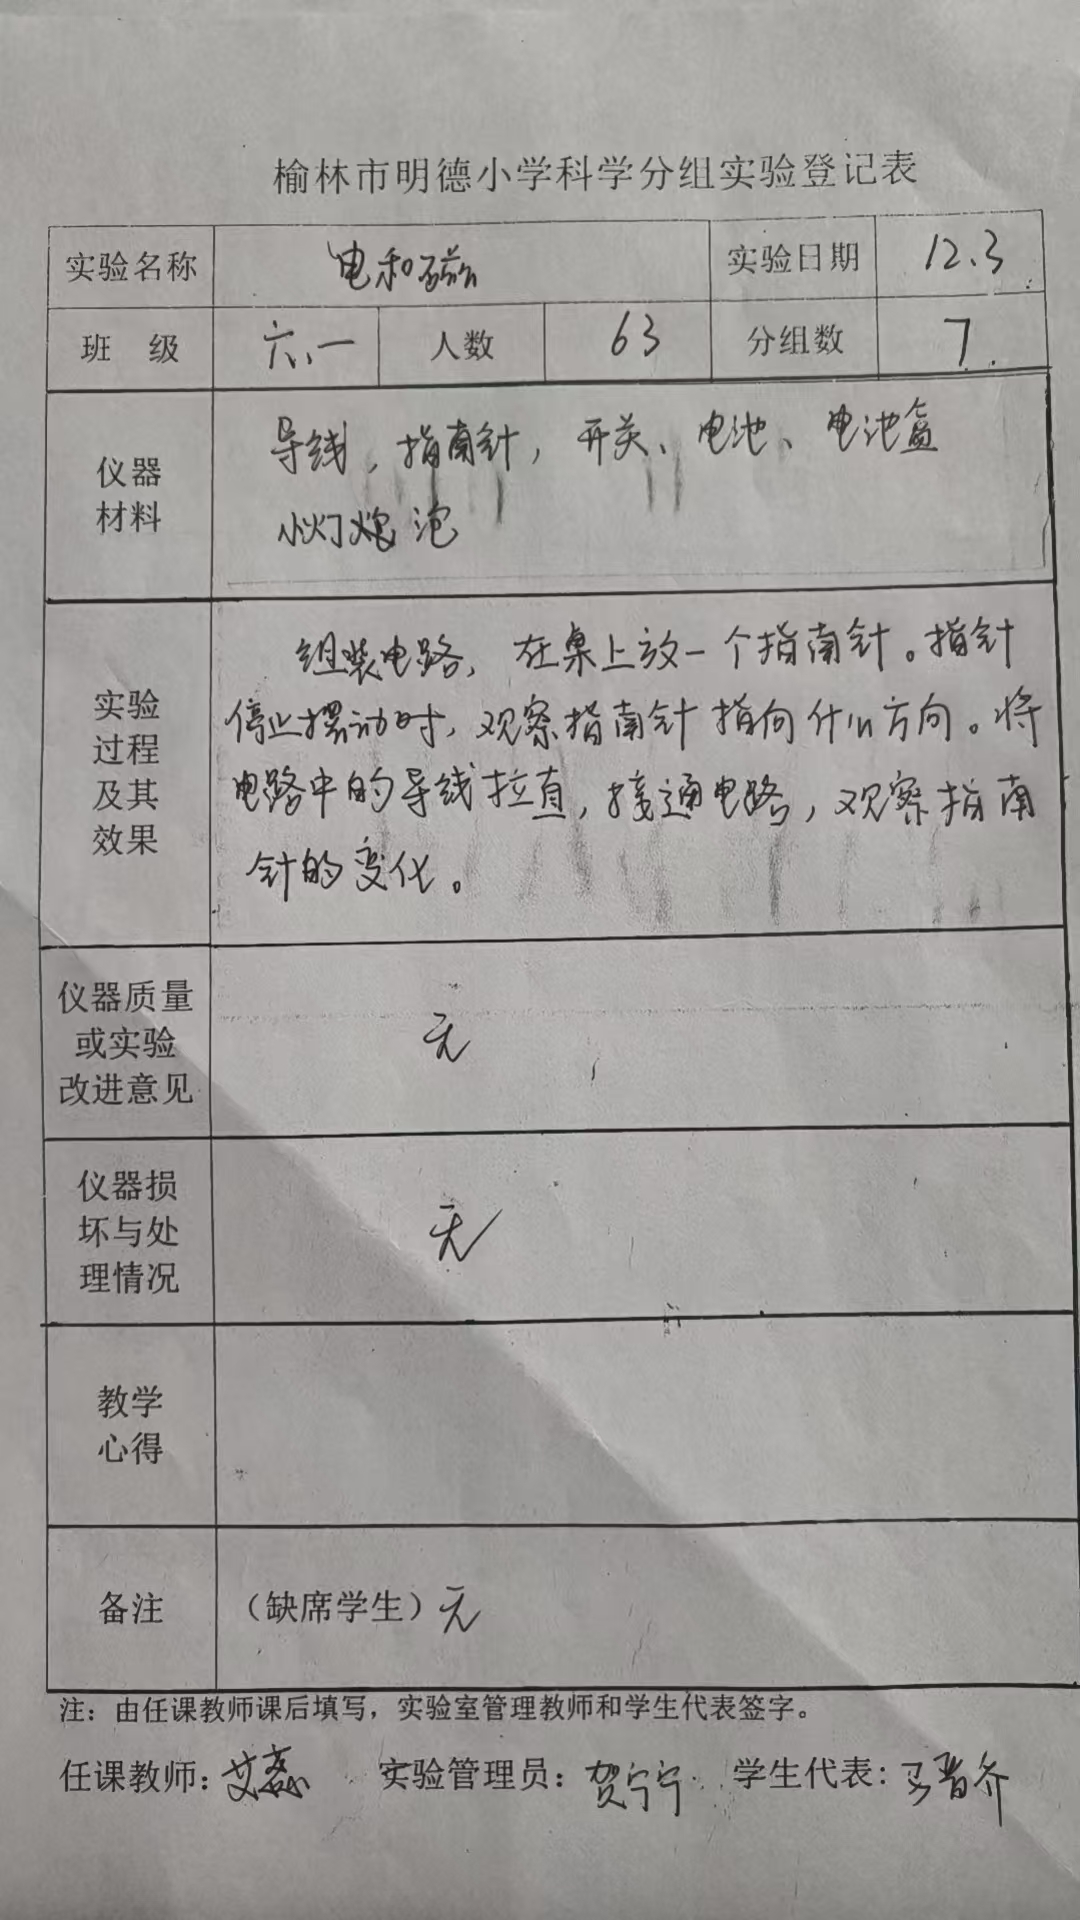 榆林市明德小学科学分组实验登记表
实验名称 电和磁 实验日期 12.3
班 级 六、一 人数 63 分组数 7.
仪器材料 导线，指南针，开关、电池、电池盒
小灯炮 泡
实验过程及其效果 组装电路，在桌上放一个指南针。指针
停止摆动时，观察指南针指向什么方向。将
电路中的导线拉直，接通电路，观察指南
针的变化。
仪器质量或实验改进意见 无
仪器损坏与处理情况 无
教学心得
备注 （缺席学生）无
注：由任课教师课后填写，实验室管理教师和学生代表签字。
任课教师：艾蕊 实验管理员：贺宁宁 学生代表：